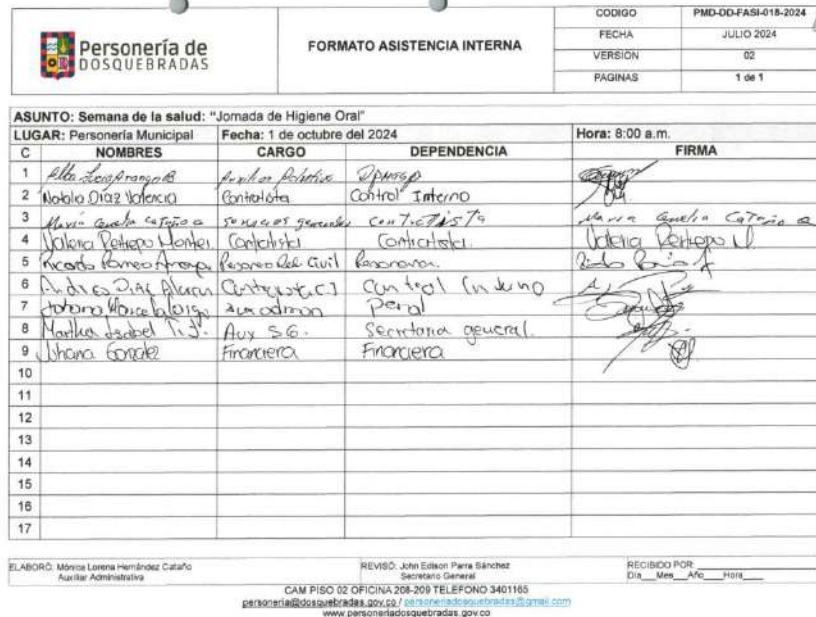 Personería de
DOSQUEBRADAS
FORMATO ASISTENCIA INTERNA
CODIGO PMD-DD-FASI-018-2024
FECHA JULIO 2024
VERSION 02
PAGINAS 1 de 1
ASUNTO: Semana de la salud: "Jornada de Higiene Oral"
LUGAR: Personería Municipal Fecha: 1 de octubre del 2024 Hora: 8:00 a.m.
C NOMBRES CARGO DEPENDENCIA FIRMA
1 Alba Lucia Arango B Auxiliar
2 Natalia Diaz Valencia Contratista Control Interno
3 Maria Amelia Cataño a servicios generales Contratista Maria Amelia Cataño a
4 Valeria Restrepo Montes Contratista Contratista Valeria Restrepo M.
5 Ricardo Romeo Personero Del. Civil Personeria
6 Andres Diaz Contratista Control Interno
7 Johana Marcela aux admon Penal
8 Martha Isabel Aux S.G. Secretaria general.
9 Johana Gonzalez Financiera Financiera
10
11
12
13
14
15
16
17
ELABORÓ: Mónica Lorena Hernández Cataño REVISÓ: John Edison Parra Sánchez RECIBIDO POR:
Auxiliar Administrativa Secretario General Dia___Mes___Año___Hora___
CAM PISO 02 OFICINA 208-209 TELEFONO 3401165
personeria@dosquebradas.gov.co / personeriadosquebradas@gmail.com
www.personeriadosquebradas.gov.co